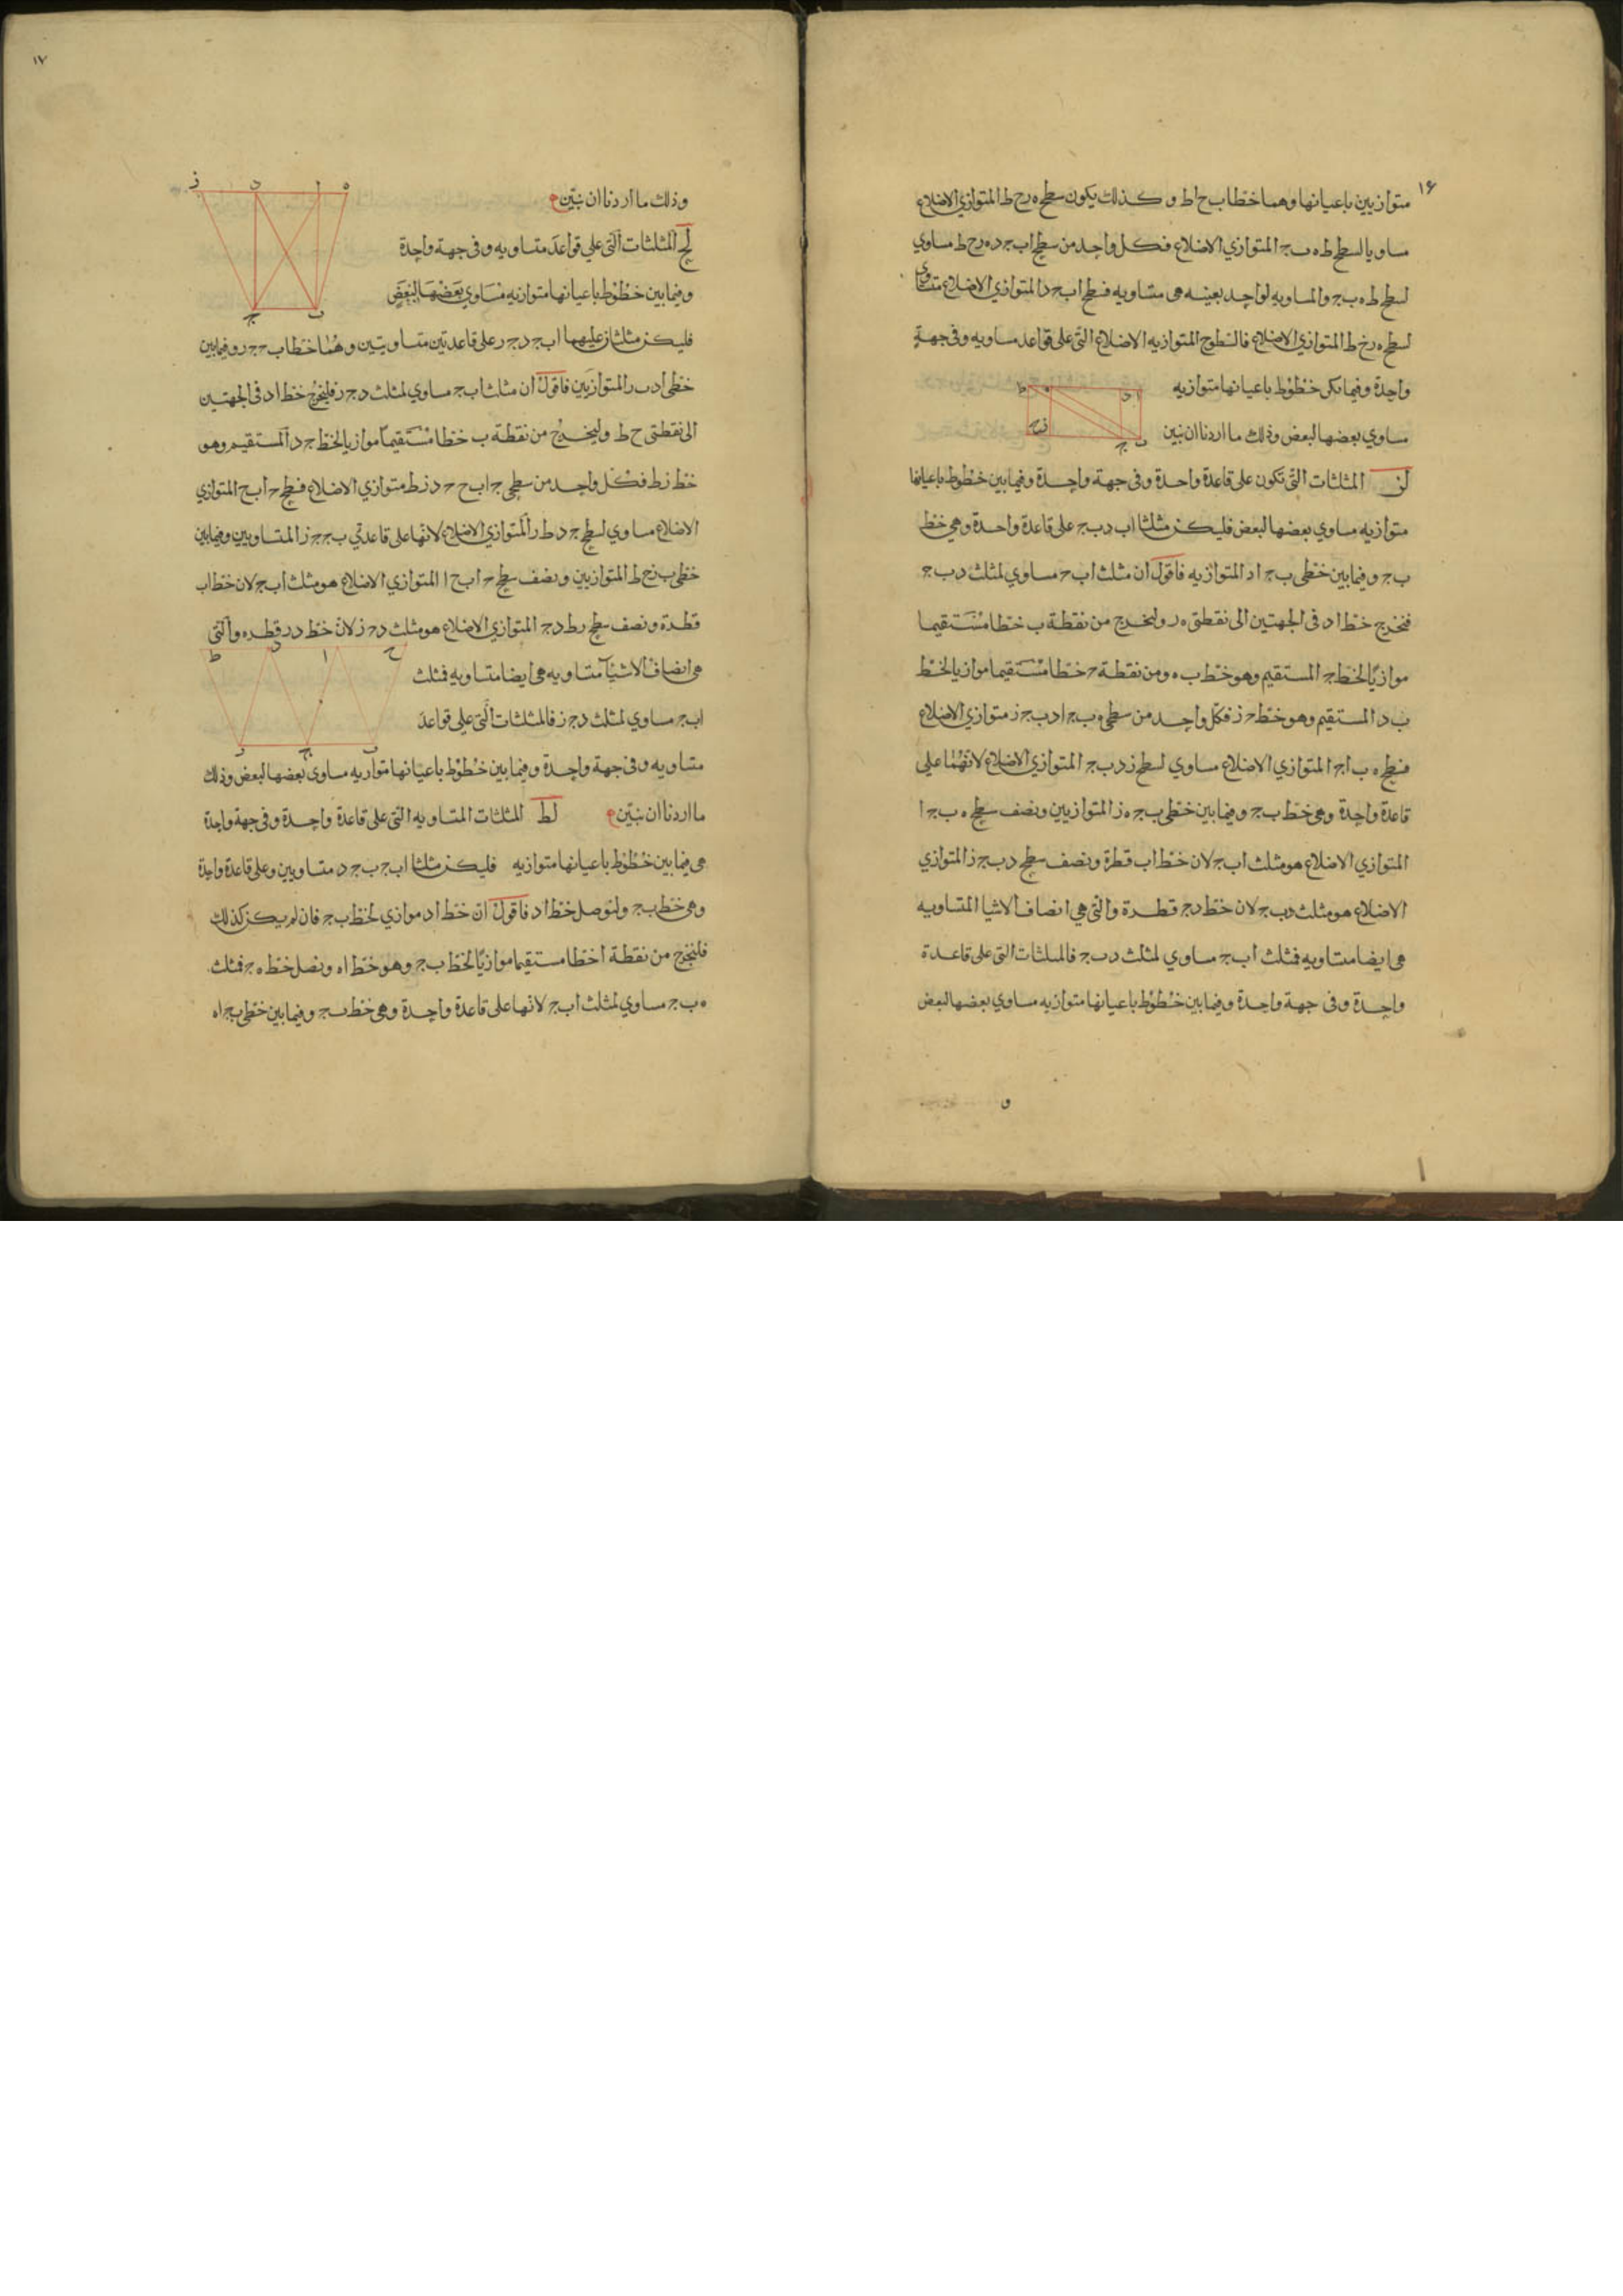 ١٦
متوازيين باعيانها وهما خطا ب ح ا ط و كذلك يكون سطح ه ر ح ط المتوازي الاضلاع
مساويا لسطح ط ه ب ج المتوازي الاضلاع فكل واحد من سطح ا ب ج د ه ر ح ط مساوي
لسطح ط ه ب ج والمساويه لواحد بعينه هى متساويه فسطح ا ب ج د المتوازي الاضلاع متساوى
لسطح ه ر ح ط المتوازي الاضلاع فالسطوح المتوازيه الاضلاع التى على قواعد متساويه وفى جهةٍ
واحدة وفيما بين خطوط باعيانها متوازيه
مساوي بعضها لبعض وذلك ما اردنا ان نبين
لز المثلثات التى تكون على قاعدة واحدة وفى جهة واحدة وفيما بين خطوط باعيانها
متوازيه مساوي بعضها لبعض فليكن مثلثا ا ب د ب ج على قاعدة واحدة وهى خط
ب ج وفيما بين خطى ب ج ا د المتوازيه فاقول ان مثلث ا ب ج مساوي لمثلث د ب ج
فنخرج خط ا د فى الجهتين الى نقطتى ه ر ولنخرج من نقطة ب خطا مستقيما
موازيًا لخط ج ا المستقيم وهو خط ب ه ومن نقطة ج خطا مستقيما موازيا لخط
ب د المستقيم وهو خط ج ز فكل واحد من سطحى ه ب ج ا د ب ج ز متوازي الاضلاع
فسطح ه ب ا ج المتوازي الاضلاع مساوي لسطح ز د ب ج المتوازي الاضلاع لانهما على
قاعدة واحدة وهى خط ب ج وفيما بين خطى ب ج ه ز المتوازيين ونصف سطح ه ب ج ا
المتوازي الاضلاع هو مثلث ا ب ج لان خط ا ب قطرة ونصف سطح د ب ج ز المتوازي
الاضلاع هو مثلث د ب ج لان خط د ج قطرة والتى هى انصاف الاشيا المتساويه
هى ايضا متساويه فمثلث ا ب ج مساوي لمثلث د ب ج فالمثلثات التى على قاعدة
واحدة وفى جهة واحدة وفيما بين خطوط باعيانها متوازيه مساوي بعضها لبعض
و
١٧
وذلك ما اردنا ان نبيّن
لح المثلثات التى على قواعد متساويه وفى جهة واحدة
وفيما بين خطوط باعيانها متوازيه مساوي بعضها لبعض
فليكن مثلثان عليهما ا ب ج د ج ر على قاعدتين متساويتين وهما خطا ب ج ج ر وفيما بين
خطى ا د ب ر المتوازيين فاقول ان مثلث ا ب ج مساوي لمثلث د ج ز فلنخرج خط ا د فى الجهتين
الى نقطتى ح ط وليخرج من نقطة ب خطا مستقيما موازيا لخط ج د المستقيم وهو
خط ز ط فكل واحد من سطحى ج ا ب ح ج د ز ط متوازي الاضلاع فسطح ج ا ب ح المتوازي
الاضلاع مساوي لسطح ج د ط ر المتوازي الاضلاع لانها على قاعدتي ب ج ج ز المتساويين وفيما بين
خطى ب ز ح ط المتوازيين ونصف سطح ج ا ب ح المتوازي الاضلاع هو مثلث ا ب ج لان خط ا ب
قطرة ونصف سطح ر ط د ج المتوازي الاضلاع هو مثلث د ج ز لان خط د ر قطره والتى
هى انصاف الاشيآ متساويه هى ايضا متساويه فمثلث
ا ب ج مساوي لمثلث د ج ز فالمثلثات التى على قواعد
متساويه وفى جهة واحدة وفيما بين خطوط باعيانها متوازيه مساوى بعضها لبعض وذلك
ما اردنا ان نبيّن لط المثلثات المتساويه التى على قاعدة واحدة وفى جهة واحدة
هى فيما بين خطوط باعيانها متوازيه فليكن مثلثا ا ب ج ب ج د متساويين وعلى قاعدة واحدة
وهى خط ب ج ولنوصل خط ا د فاقول ان خط ا د موازي لخط ب ج فان لم يكن كذلك
فلنخرج من نقطة ا خطا مستقيما موازيًا لخط ب ج وهو خط ا ه ونصل خط ه ج فمثلث
ه ب ج مساوي لمثلث ا ب ج لانها على قاعدة واحدة وهى خط ب ج وفيما بين خطى ب ج ا ه